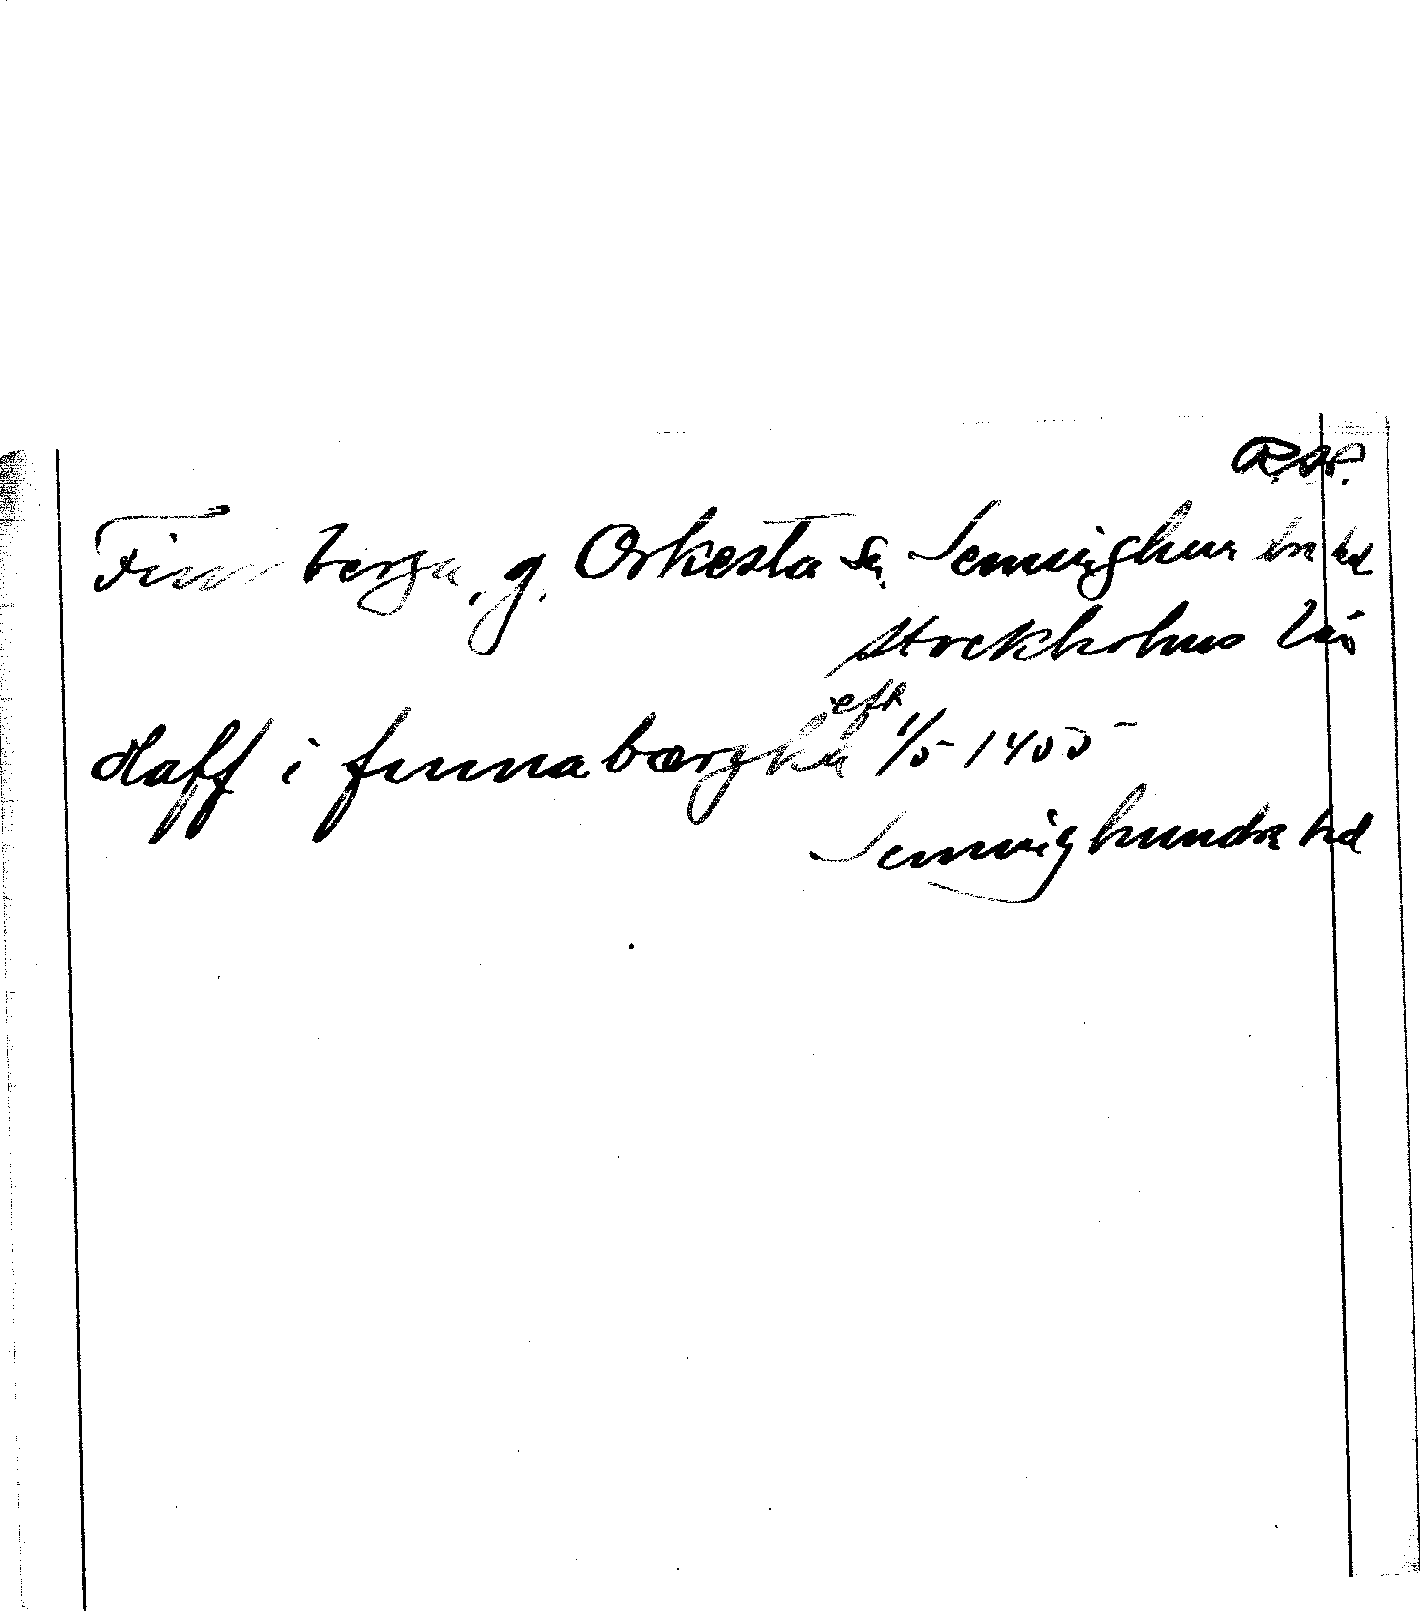 Finnberga, g. Orkesta sn. Semminghundra hd
Stockholms län
eft
Haff i finnabærghu 1/5 1405
Semminghundra hd